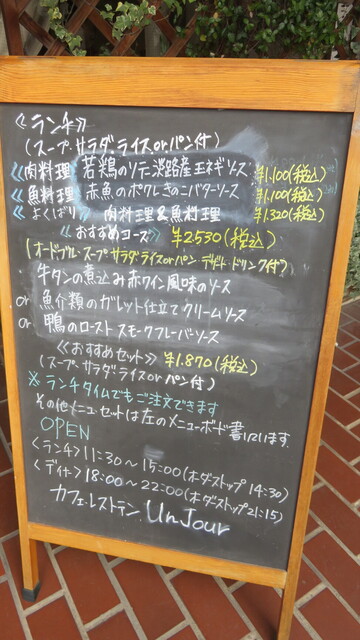 ≪ランチ≫
(スープ、サラダ、ライスorパン付)
≪肉料理≫ 若鶏のソテー淡路産玉ネギソース ¥1.100(税込)
≪魚料理≫ 赤魚のポワレきのこバターソース ¥1.100(税込)
≪よくばり≫ 肉料理&魚料理 ¥1.320(税込)
≪おすすめコース≫ ¥2530(税込)
(オードブル・スープ サラダ・ライスorパン・デザート・ドリンク付)
牛タンの煮込み赤ワイン風味のソース
or 魚介類のガレット仕立てクリームソース
or 鴨のロースト スモークフレーバーソース
≪おすすめセット≫ ¥1.870(税込)
(スープ・サラダ・ライスor パン付)
※ランチタイムでもご注文できます
その他メニュー、セットは左のメニューボード書いています
OPEN
<ランチ>11:30~15:00(オーダーストップ14:30)
<ディナー>18:00~22:00(オーダーストップ21:15)
カフェ・レストラン UnJour